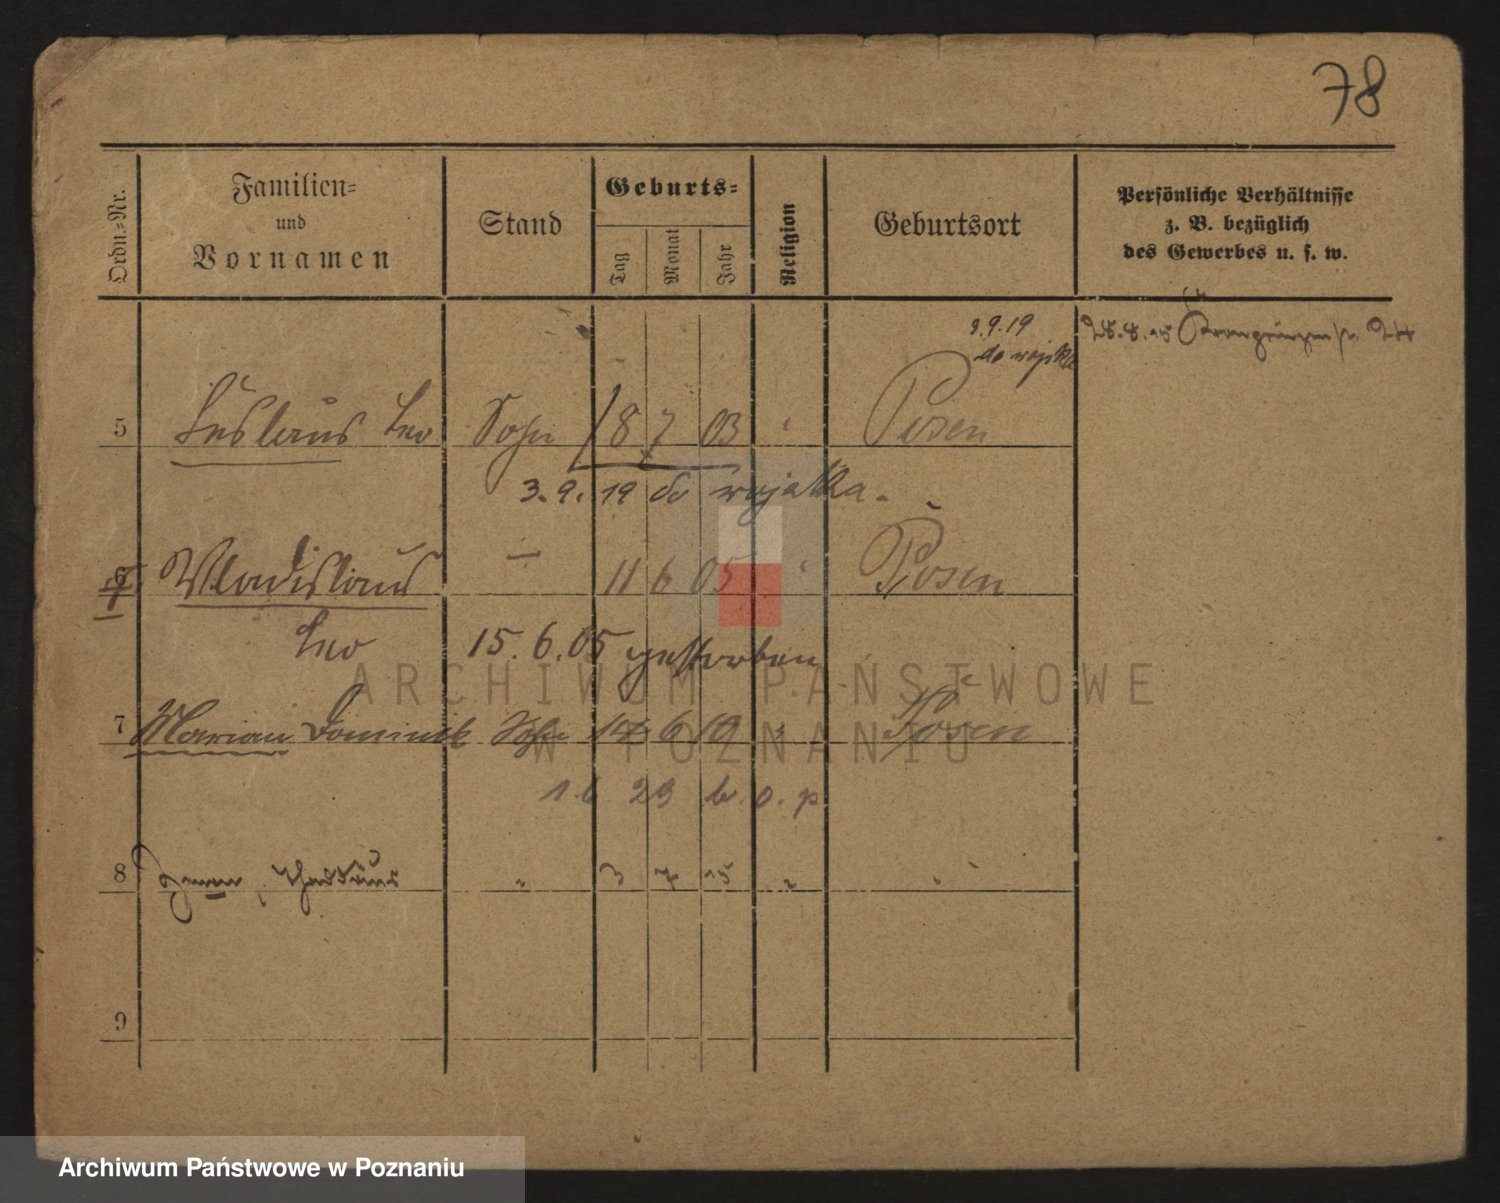 78
Ordn.-Nr.
Familien-
und
Vornamen
Stand
Geburts-
Tag
Monat
Jahr
Religion
Geburtsort
Persönliche Verhältnisse
z. B. bezüglich
des Gewerbes u. s. w.
3.9.19
do wojska
28.8.15
5 Leo Sohn 18 7 03 Posen
3.9.19 do wojska.
6 Wladislaus 11 6 05 Posen
Leo 15.6.05 gestorben
7 Marian Dominik Sohn 14 6 10 Posen
1.6 23 b. o. p.
8 Thaddäus " 3 7 15 " "
9
ARCHIWUM PAŃSTWOWE
W POZNANIU
Archiwum Państwowe w Poznaniu